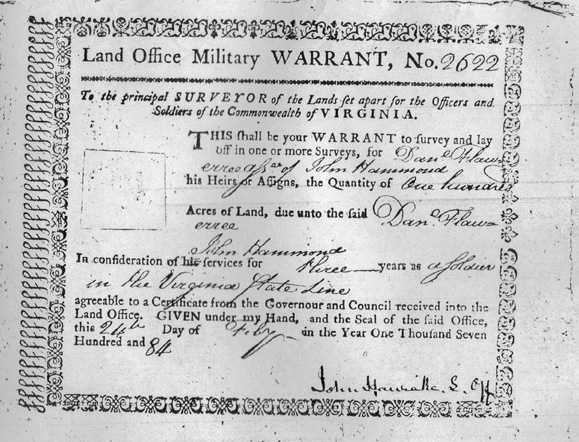 Land Office Military WARRANT, No. 2622
To the principal SURVEYOR of the Lands ſet apart for the Officers and
Soldiers of the Commonwealth of VIRGINIA.
THIS ſhall be your WARRANT to ſurvey and lay
off in one or more Surveys, for Danl Flaw=
erree aſsee of John Hammond
his Heirs or Aſſigns, the Quantity of One hundred
Acres of Land, due unto the ſaid Danl Flaw=
erree
John Hammond
In conſideration of his ſervices for three years as a Soldier
in the Virginia State Line
agreeable to a Certificate from the Governour and Council received into the
Land Office. GIVEN under my Hand, and the Seal of the ſaid Office,
this 24th Day of Feby in the Year One Thouſand Seven
Hundred and 84
John